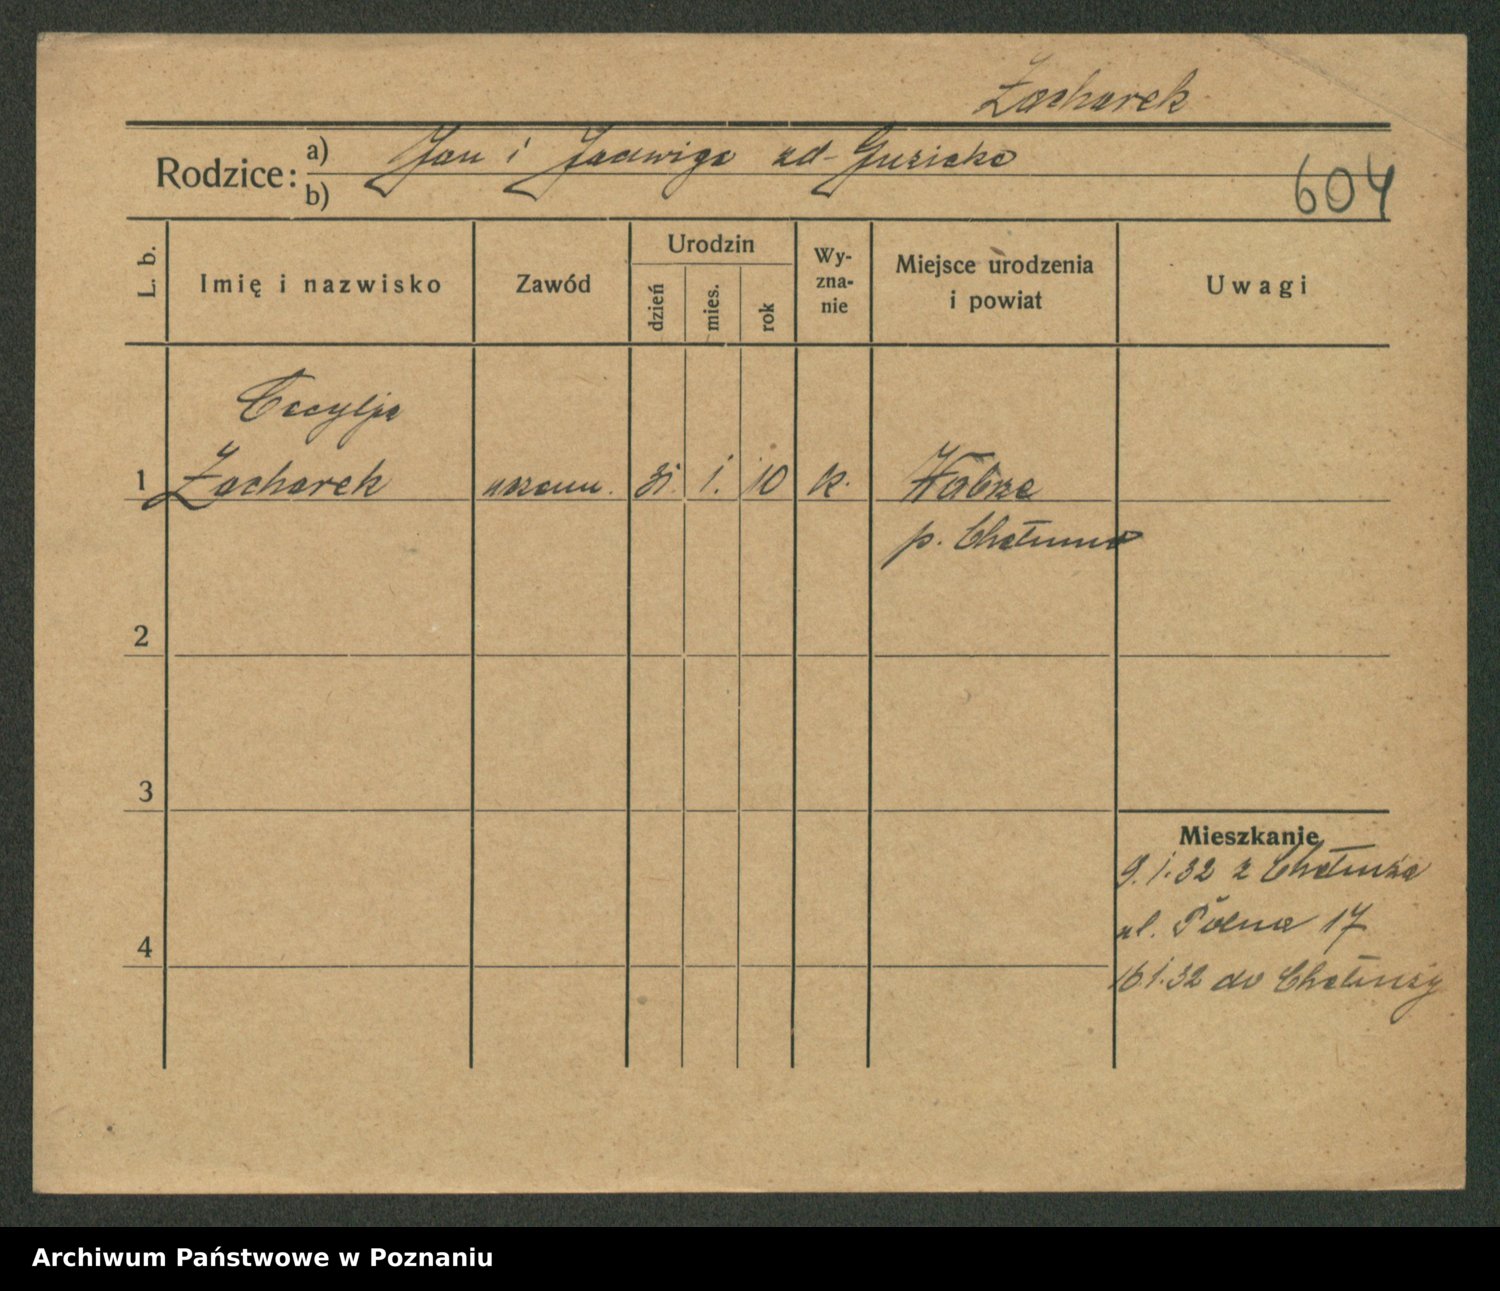 Zacharek
Rodzice: a) Jan i Jadwiga zd-
b)
604
L. b.
Imię i nazwisko
Zawód
Urodzin
dzień
mies.
rok
Wy-
zna-
nie
Miejsce urodzenia
i powiat
Uwagi
Cecylja
1 Zacharek 31. 1. 10 k.
p.
2
3
Mieszkanie
9.1.32 z Chełmża
ul. Polna 17
4
16 1.32 do Chełmży
Archiwum Państwowe w Poznaniu